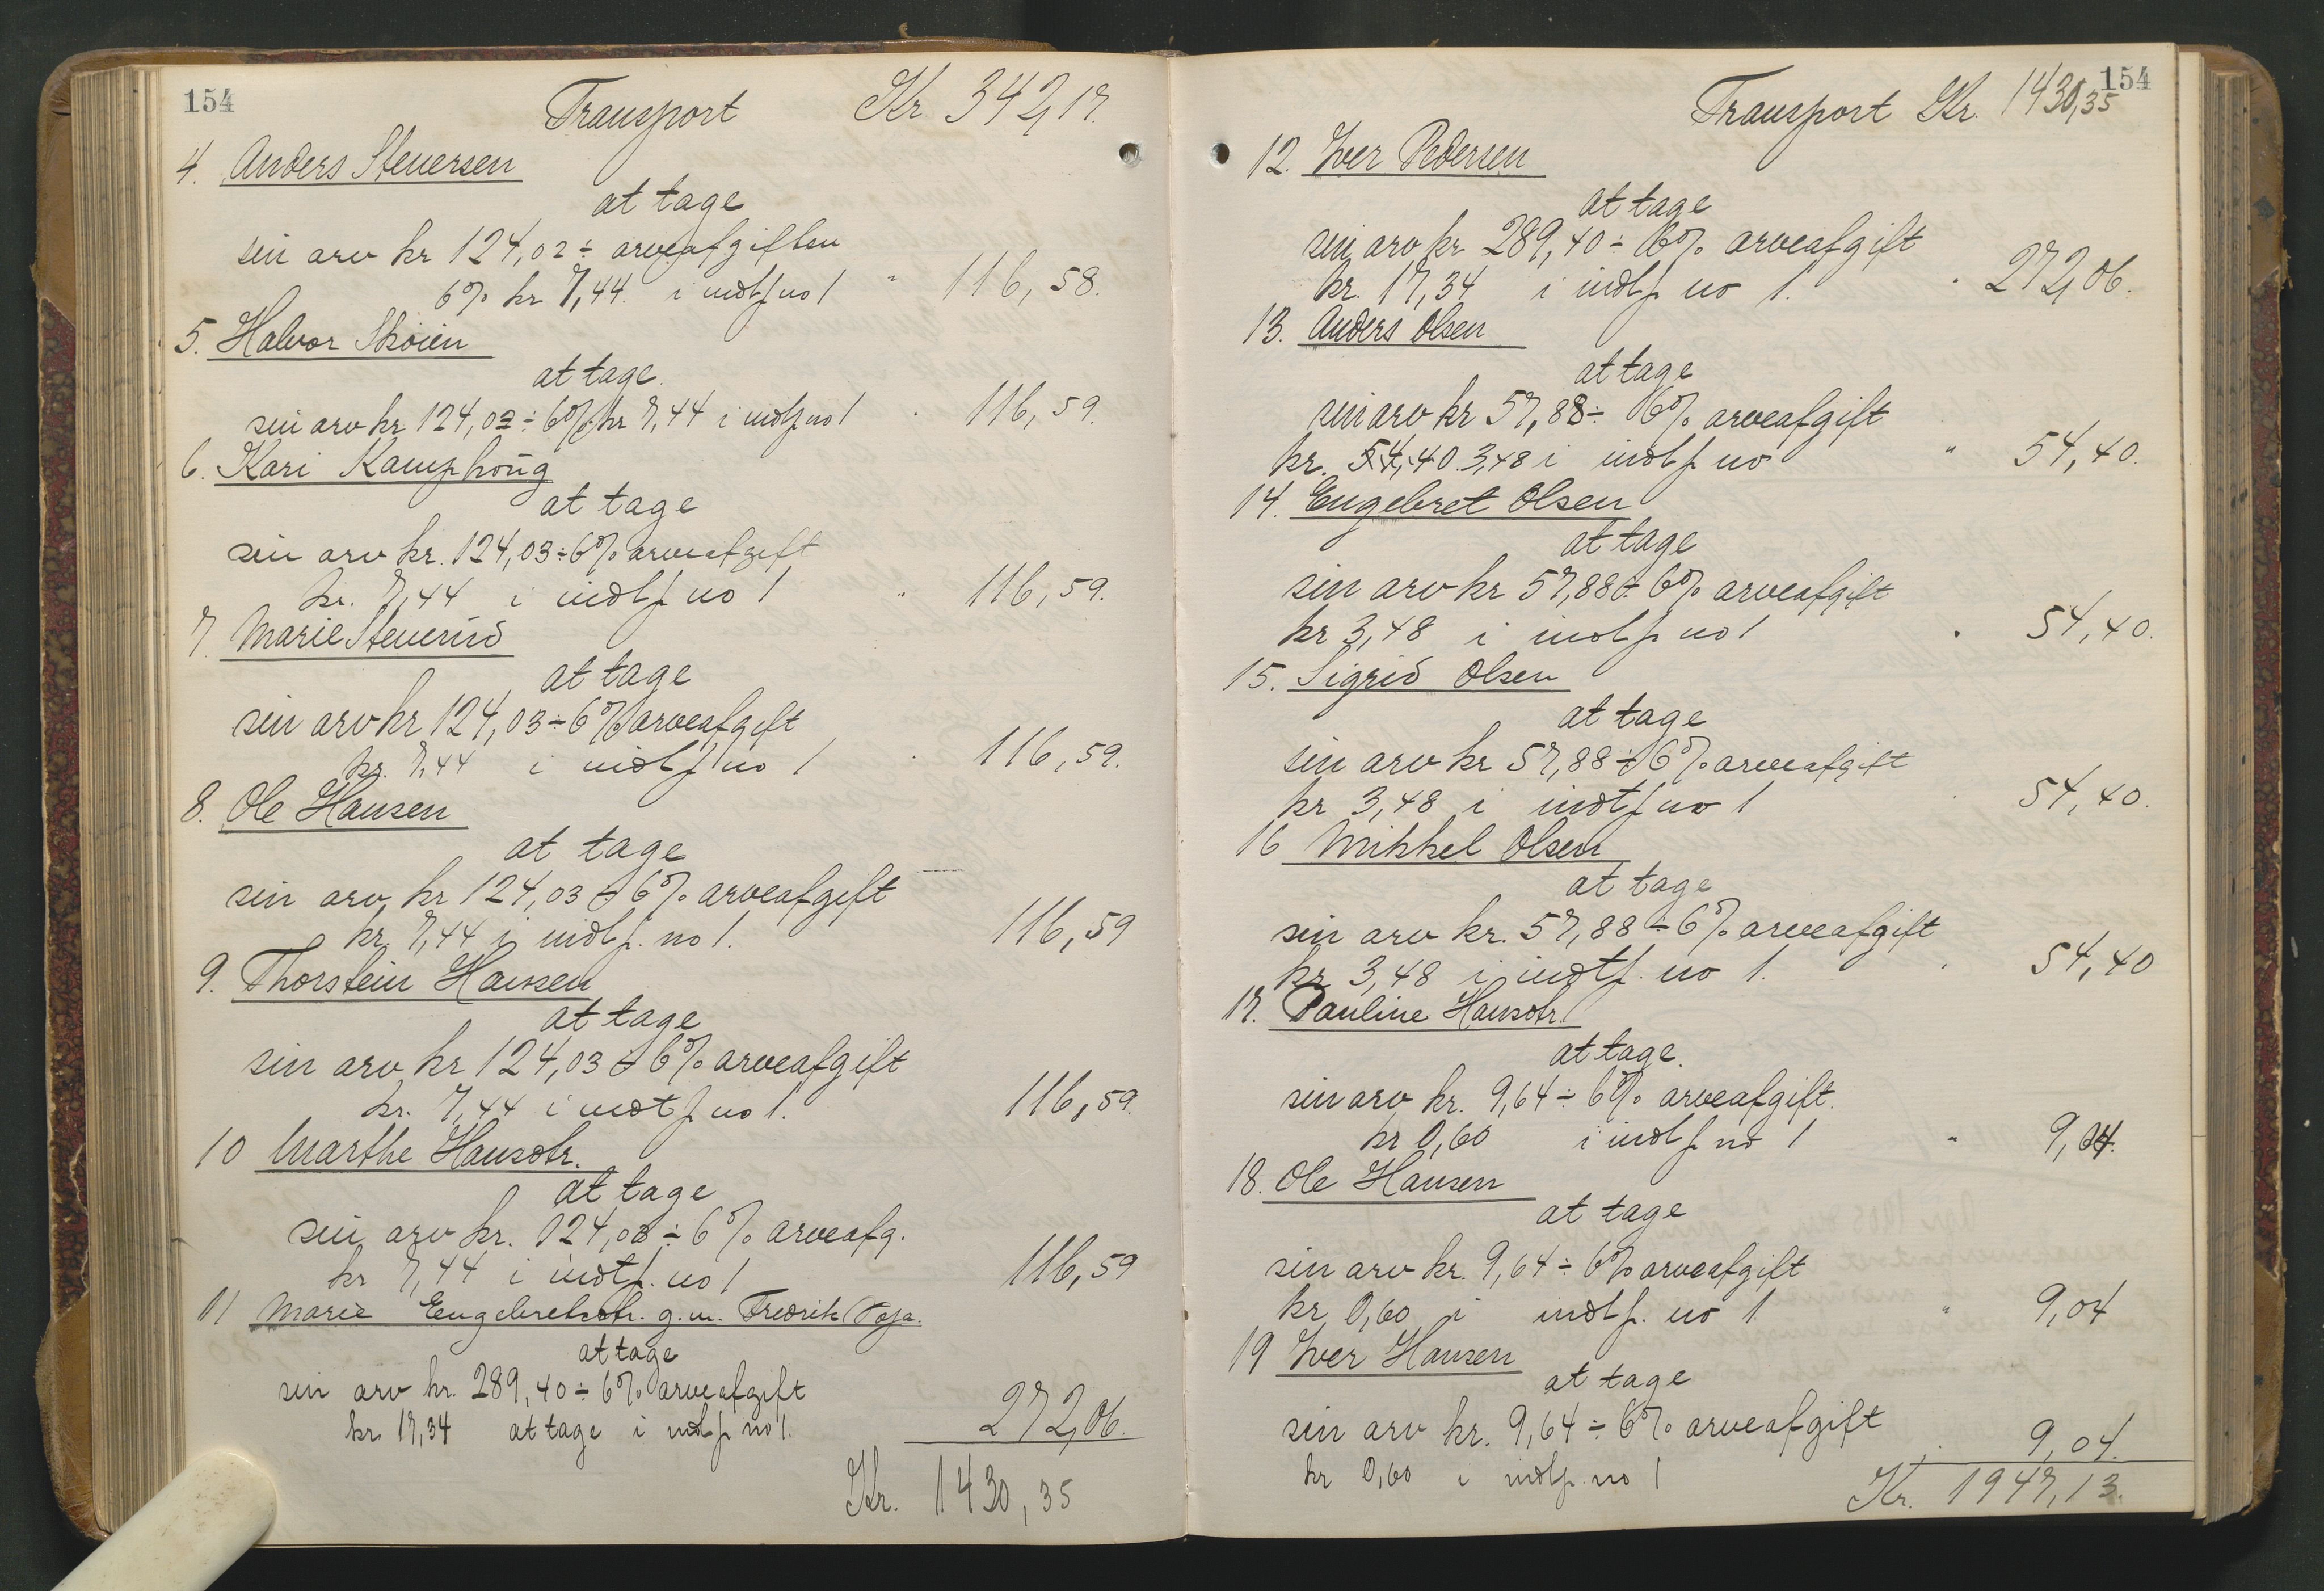 154
Transport Kr 342,17.
4. Anders Steuersen
at tage
sin arv kr 124,02 ÷ arveafgiften
6% kr 7,44. i indtf no 1 " 116,58.
5. Halvor Skoien
at tage.
sin arv kr 124,03 ÷ 6% kr 7,44 i indtf no 1 " 116,59.
6. Kari Kamphoug
at tage
sin arv kr. 124,03 ÷ 6% arveafgift
kr. 7,44 i indtf no 1 " 116,59.
7. Marie Steuerud
at tage
sin arv kr 124,03 ÷ 6% arveafgift
kr. 7,44 i indtf no 1 " 116,59.
8. Ole Hansen
at tage
sin arv kr 124,03 ÷ 6% arveafgift
kr 7,44 i indtf. no 1. 116,59
9. Thorstein Hansen
at tage
sin arv kr 124,03 ÷ 6% arveafgift
kr. 7,44 i indtf no 1. 116,59.
10 Marthe Hansdtr.
at tage
sin arv kr. 124,03 ÷ 6% arveafg.
kr 7,44 i indtf. no 1 116,59
11 Marie Engebretsdtr. g.m. Fredrik
at tage
sin arv kr. 289,40 ÷ 6% arveafgift
kr 17,34 at tage i indtf no 1. 272,06.
Kr. 1430,35
154
Transport Kr. 1430,35
12. Iver Pedersen
at tage
sin arv kr 289,40 ÷ 6% arveafgift
kr. 17,34 i indtf. no 1. " 272,06.
13. Anders Olsen
at tage
sin arv kr 57,88 ÷ 6% arveafgift
kr. 54,40. 3,48 i indtf no " 54,40.
14. Engebret Olsen
at tage
sin arv kr 57,88 ÷ 6% arveafgift
kr 3,48 i indtf. no 1 " 54,40.
15. Sigrid Olsen
at tage
sin arv kr 57,88 ÷ 6% arveafgift
kr 3,48 i indtf no 1 54,40.
16 Mikkel Olsen
at tage
sin arv kr. 57,88 ÷ 6% arveafgift
kr 3,48 i indtf. no 1. " 54,40
17. Pauline Hansdtr.
at tage.
sin arv kr. 9,64 ÷ 6% arveafgift.
kr 0,60 i indtf no 1 " 9,04.
18. Ole Hansen
at tage
sin arv kr. 9,64 ÷ 6% arveafgift
kr 0,60 i indtf. no 1 " 9,04
19 Iver Hansen
at tage
sin arv kr. 9,64 ÷ 6% arveafgift
kr 0,60 i indtf. no 1 " 9,04.
Kr. 1947,13.